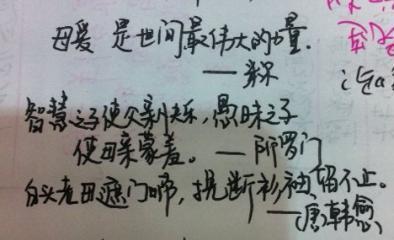 母爱是世间最伟大的力量.
——米尔
智慧之子使父亲快乐,愚昧之子
使母亲蒙羞。——所罗门
白头老母遮门啼,挽断衫袖留不止。
——唐 韩愈